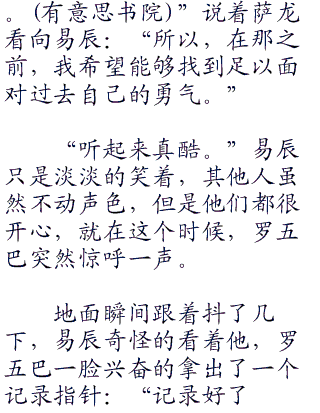 。(有意思书院)”说着萨龙
看向易辰：“所以，在那之
前，我希望能够找到足以面
对过去自己的勇气。”
“听起来真酷。”易辰
只是淡淡的笑着，其他人虽
然不动声色，但是他们都很
开心，就在这个时候，罗五
巴突然惊呼一声。
地面瞬间跟着抖了几
下，易辰奇怪的看着他，罗
五巴一脸兴奋的拿出了一个
记录指针：“记录好了